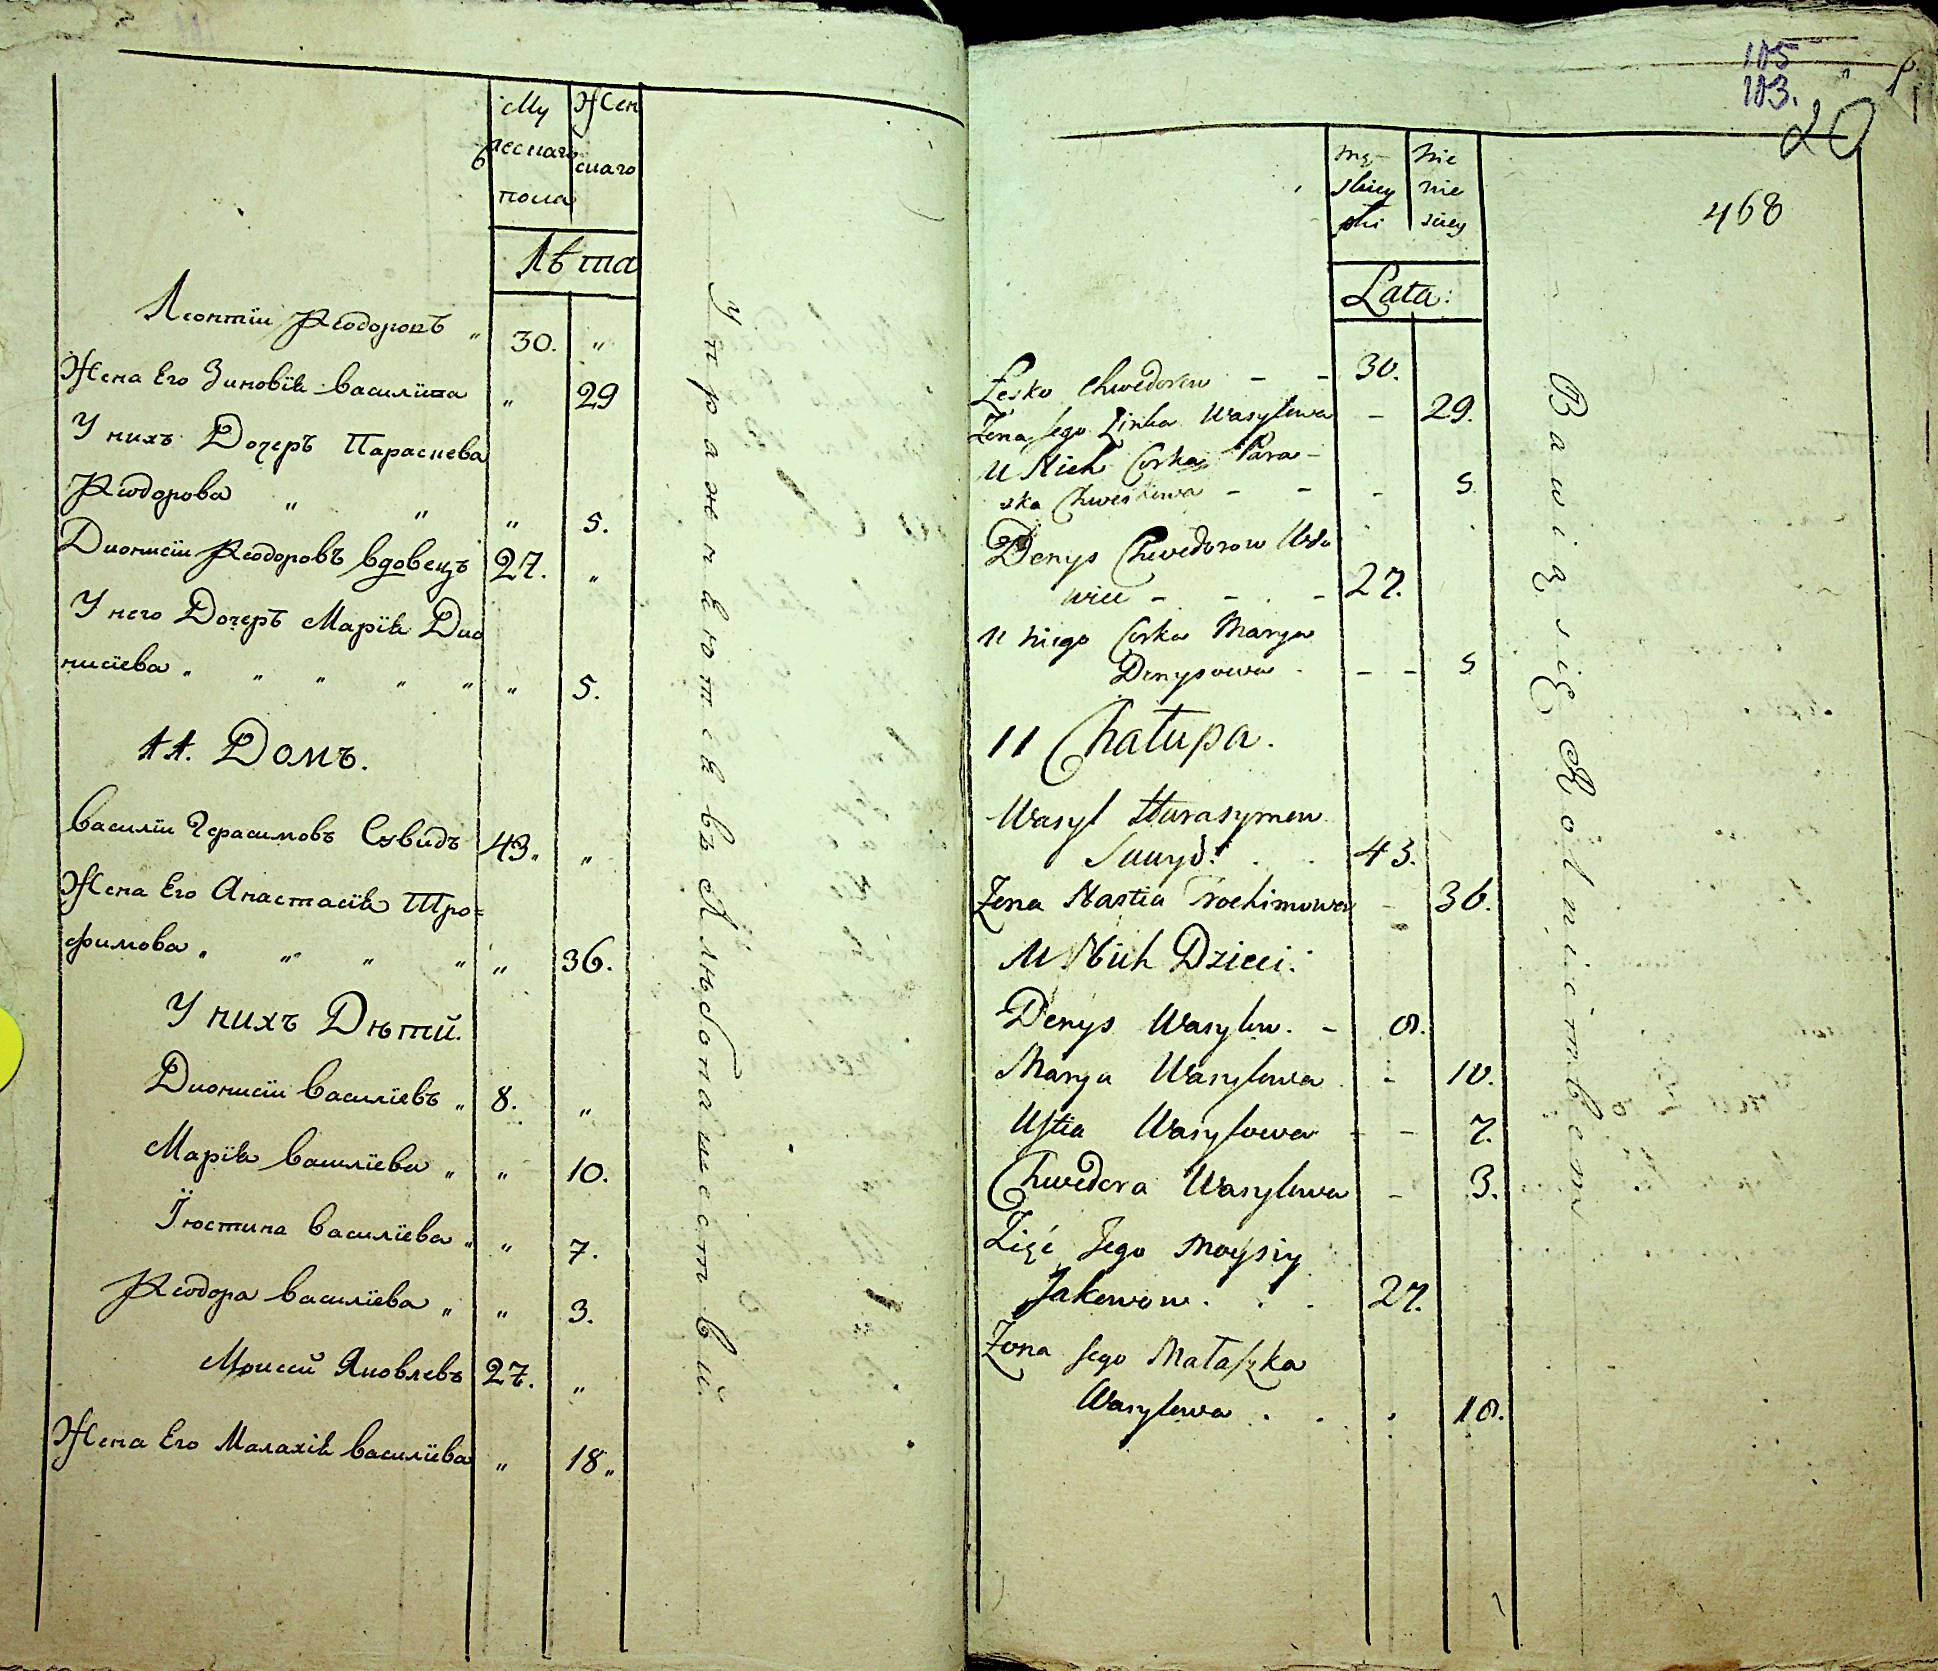 Му Жен
жеснаго снаго
пола
Лѣта
Леонтiи Ѳеодоровъ „ 30. „
Жена Его Зиновiя Василiева „ 29
У нихъ Дочеръ Параскева
Ѳеодорова „ „ „ 5.
Дионисiи Ѳеодоровъ вдовецъ 27. „
У него Дочеръ Марiя Дио
нисiева „ „ „ „ „ „ 5.
11. Домъ.
Василiи Герасимовъ Сувидъ 43„ „
Жена Его Анастасiя Тро=
фимова „ „ „ „ „ 36.
У нихъ Дѣтй.
Дионисiи Василiевъ „ 8. „
Марiя Василiева „ „ 10.
Їюстина Василiева „ „ 7.
Ѳеодора Василiева „ „ 3.
Моисей Яковлевъ 27. „
Жена Его Малахiя Василiева „ 18„
Упражняются въ Хлѣбопашествѣ.
105
103.
20
468
męskiey
nie
Lata:
Leśko Chwedorow - - 30.
Żona Jego Zinka Wasylowa - 29.
U Nich Corka Para-
ska Chweskowa - - - 5
Denys Chwedorow Wdo
wiec - - - 27.
U niego Corka Marya
Denysowa - - - 5
11 Chałupa.
Wasyl Harasymow
Suwyd. . . 43.
Żona Nastia Trochimowa - 36.
U Nich Dzieci:
Denys Wasylow. - 8.
Marya Wasylowa - 10.
Ustia Wasylowa - - 7.
Chwedora Wasylowa - 3.
Zięć Jego Moysiy
Jakowow. . . 27.
Żona Jego Małaszka
Wasylowa . . . 18.
Bawią się Rolnictwem